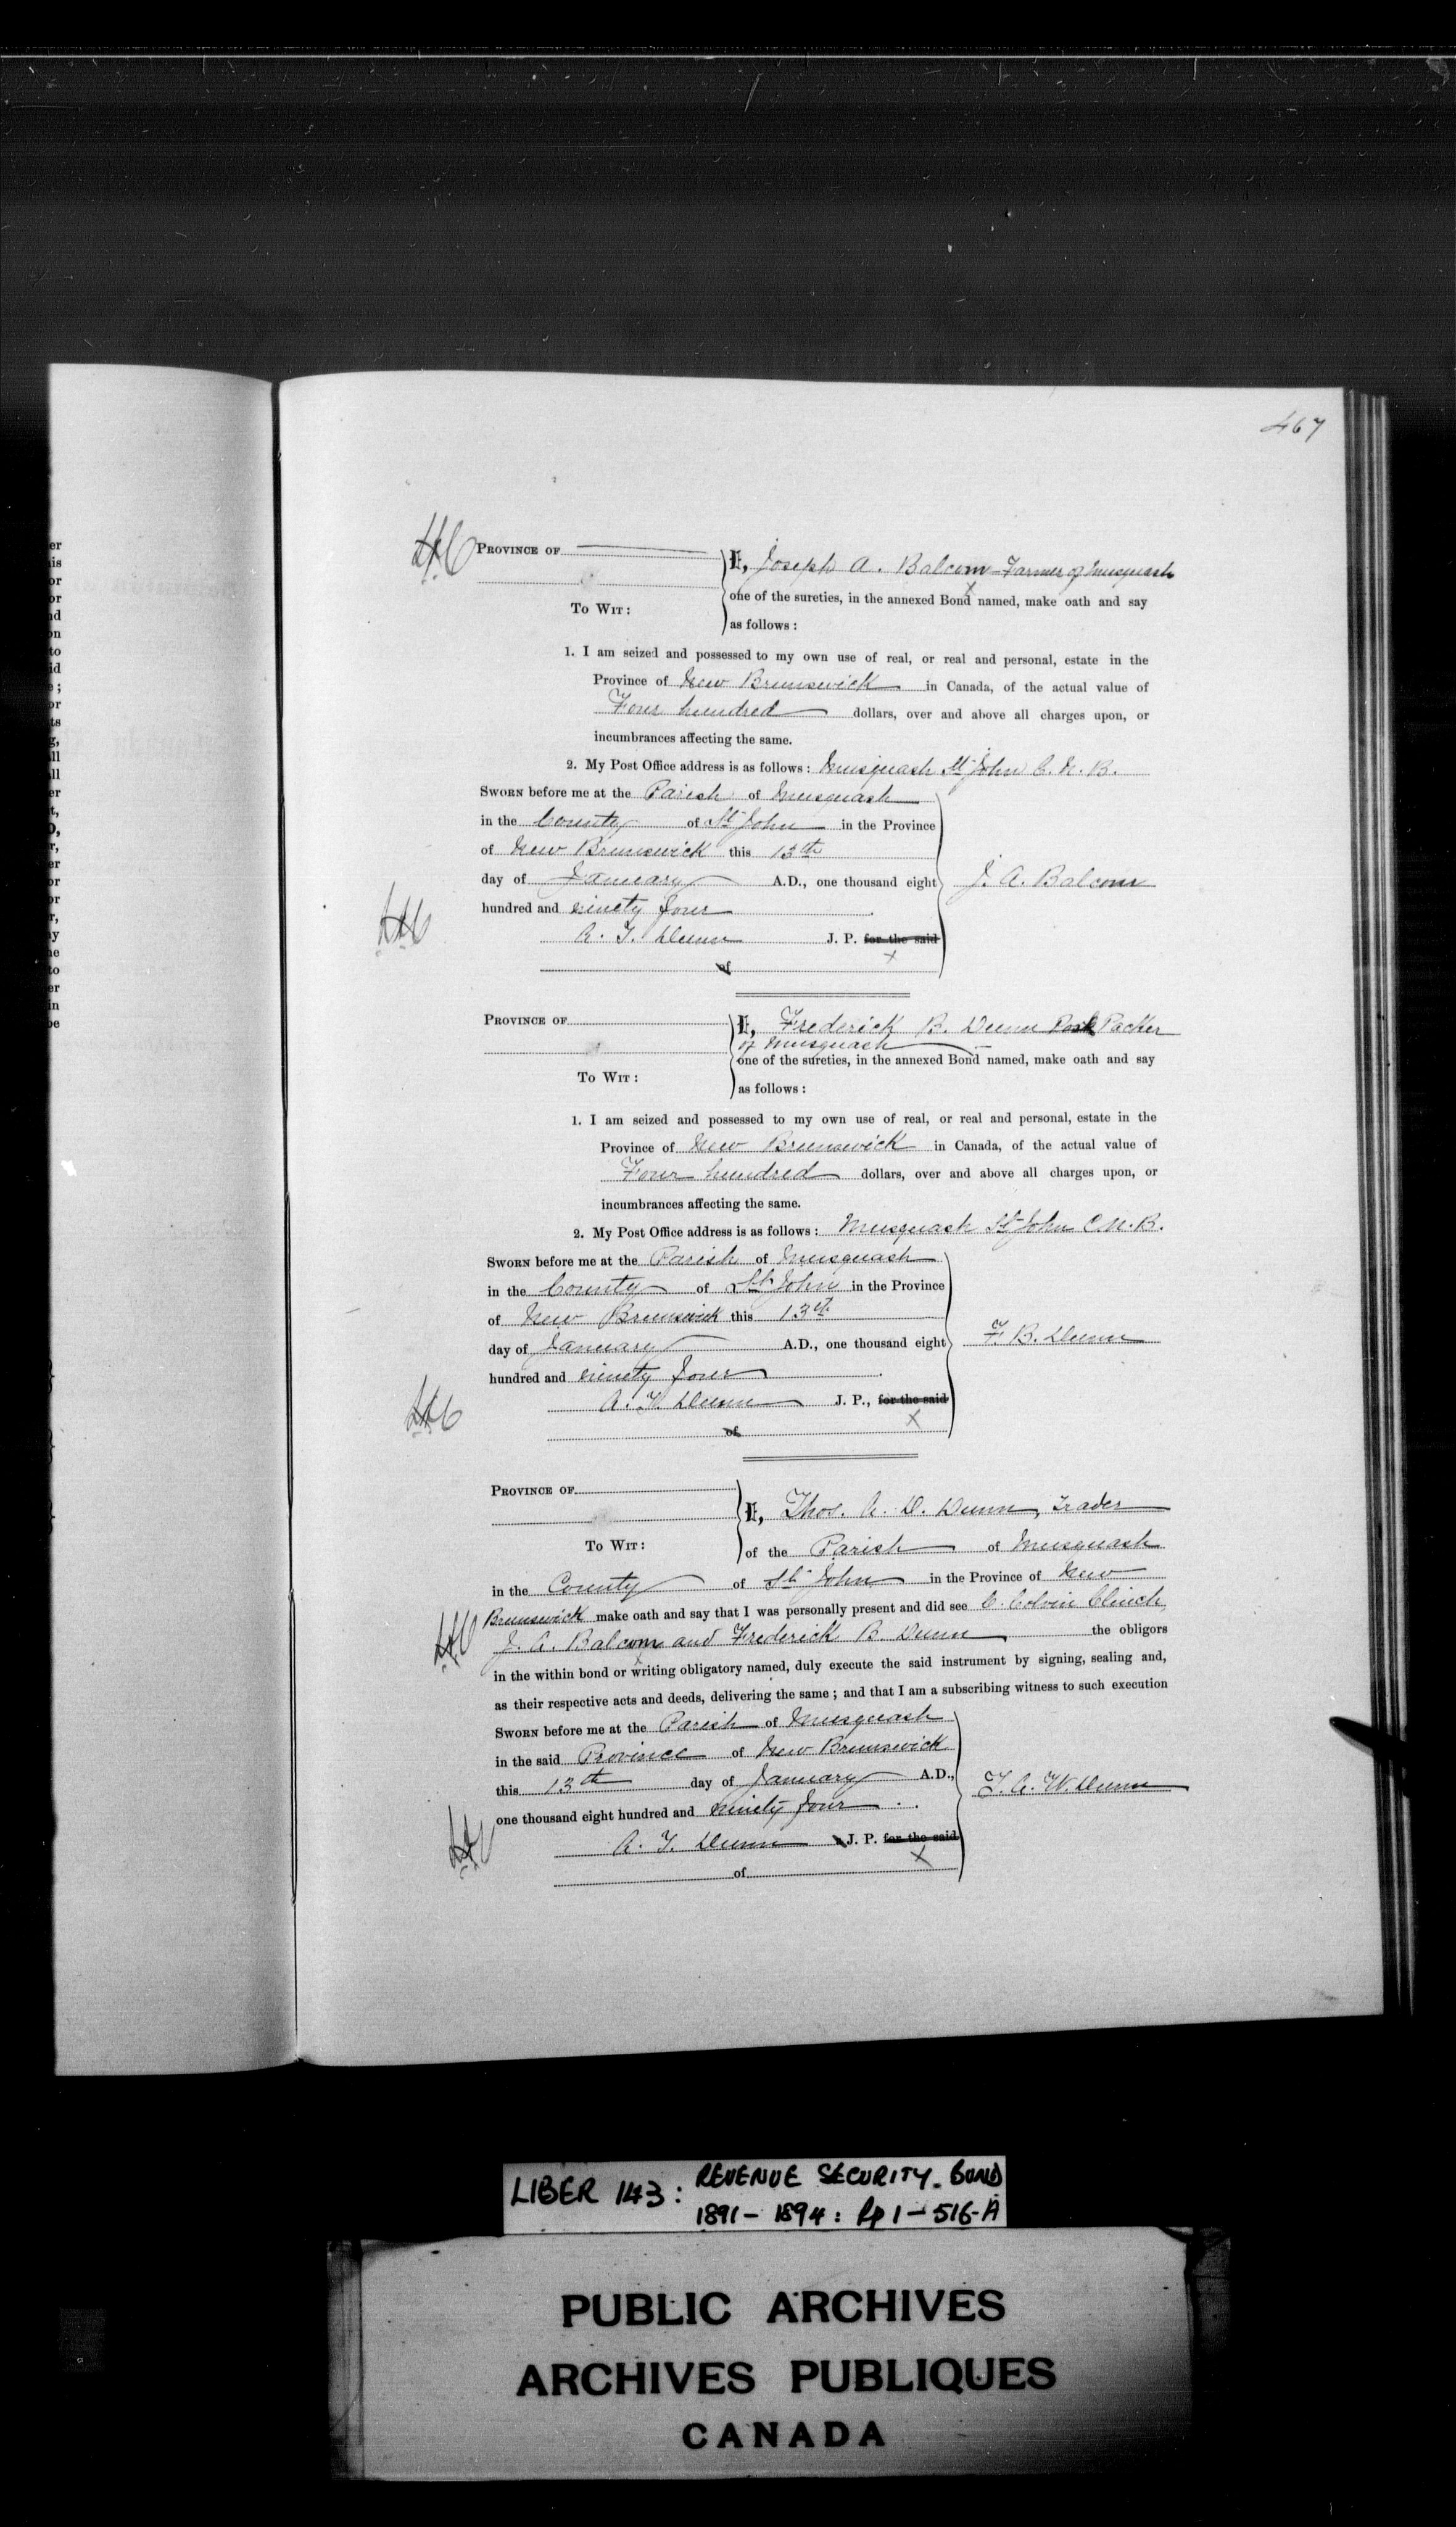 467
PROVINCE OF
I, Joseph A. Balcom Farmer of Musquash
one of the sureties, in the annexed Bond named, make oath and say
TO WIT:
as follows:
1. I am seized and possessed to my own use of real, or real and personal, estate in the
Province of New Brunswick in Canada, of the actual value of
Four hundred dollars, over and above all charges upon, or
incumbrances affecting the same.
2. My Post Office address is as follows: Musquash St John C. N. B.
SWORN before me at the Parish of Musquash
in the County of St John in the Province
of New Brunswick this 13th
day of January A.D., one thousand eight
J. A. Balcom
hundred and ninety four
A. T. Dunn J. P. for the said
of
PROVINCE OF
I, Frederick B. Dunn Packer
of Musquash
one of the sureties, in the annexed Bond named, make oath and say
TO WIT:
as follows:
1. I am seized and possessed to my own use of real, or real and personal, estate in the
Province of New Brunswick in Canada, of the actual value of
Four hundred dollars, over and above all charges upon, or
incumbrances affecting the same.
2. My Post Office address is as follows: Musquash St John C N. B.
SWORN before me at the Parish of Musquash
in the County of St John in the Province
of New Brunswick this 13th
day of January A.D., one thousand eight
F. B. Dunn
hundred and ninety four
A. T. Dunn J. P., for the said
of
PROVINCE OF
I, Thos. A. D. Dunn, Trader
TO WIT:
of the Parish of Musquash
in the County of St John in the Province of New
Brunswick make oath and say that I was personally present and did see C. Colvin Clinch
J. A. Balcom and Frederick B. Dunn the obligors
in the within bond or writing obligatory named, duly execute the said instrument by signing, sealing and,
as their respective acts and deeds, delivering the same; and that I am a subscribing witness to such execution
SWORN before me at the Parish of Musquash
in the said Province of New Brunswick
this 13th day of January A.D.,
T. A. W. Dunn
one thousand eight hundred and ninety four
A. T. Dunn J. P. for the said
of
LIBER 143: REVENUE SECURITY. BOND
1891-1894: Pp 1-516-A
PUBLIC ARCHIVES
ARCHIVES PUBLIQUES
CANADA